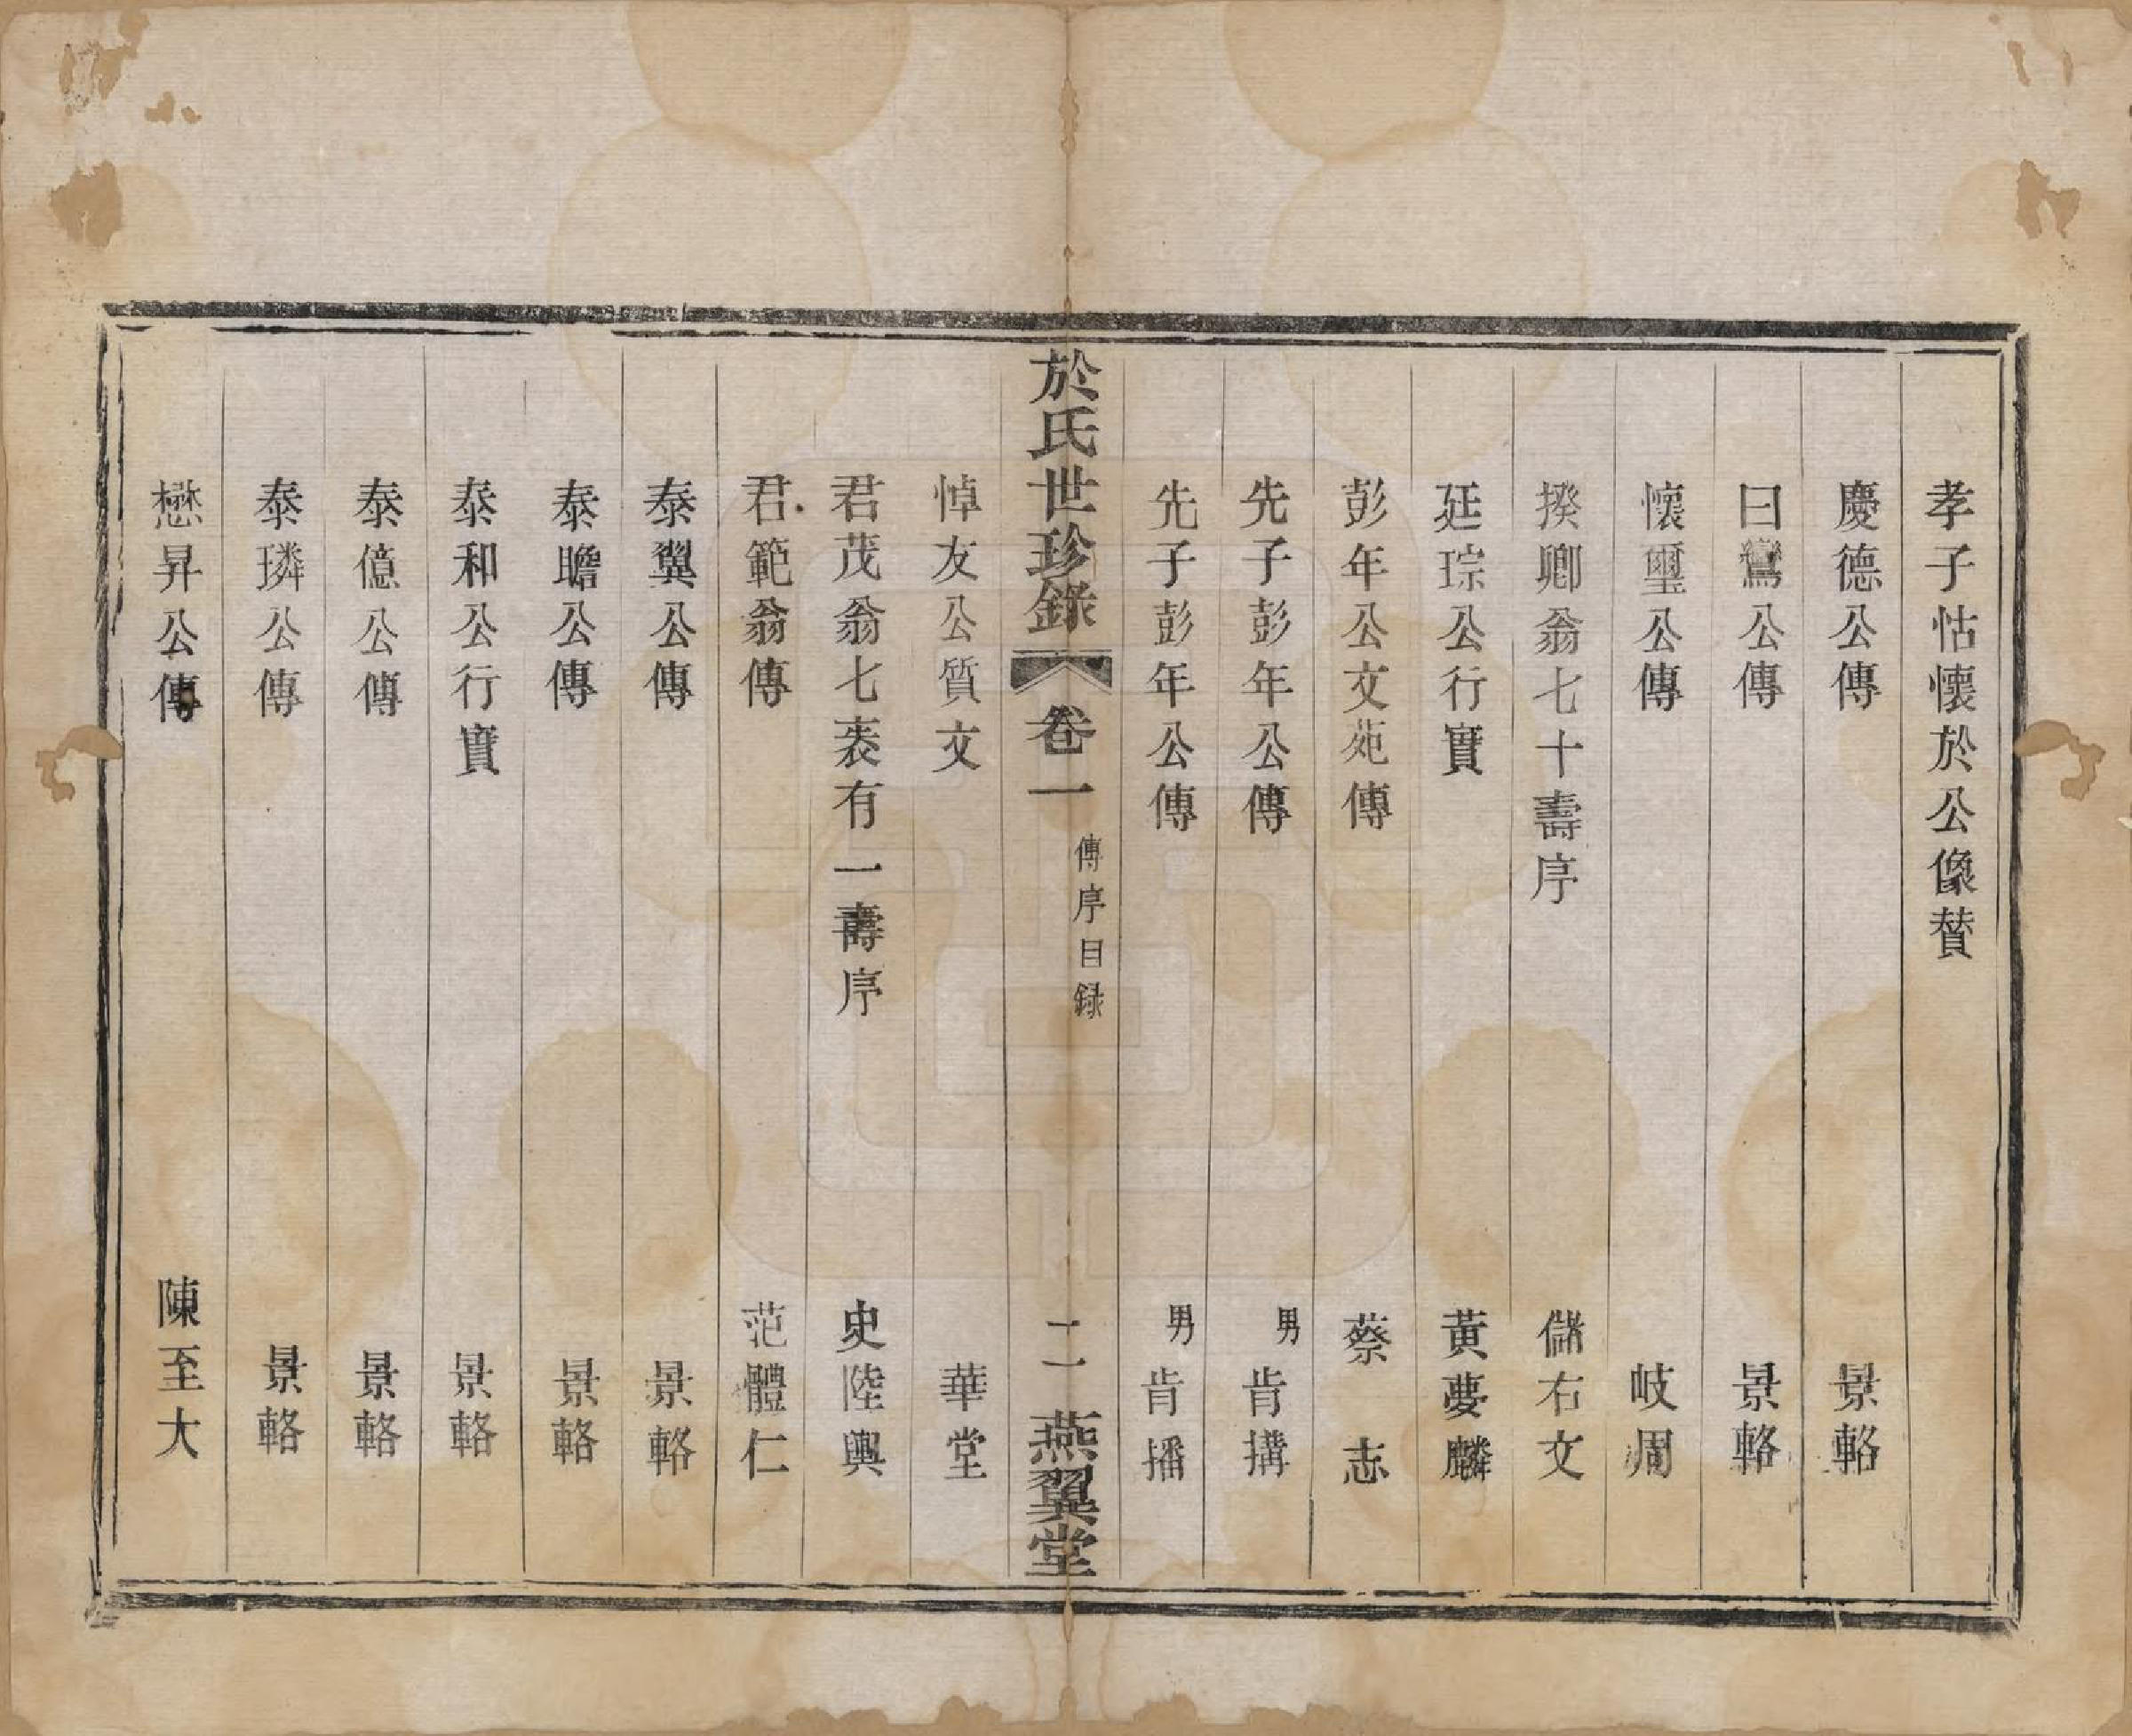 孝子怙懷於公像賛
慶德公傳　景輅
曰鸞公傳　景輅
懷璽公傳　岐周
揆卿翁七十壽序　儲右文
廷琮公行實　黃夢麟
彭年公文苑傳　蔡志
先子彭年公傳　男肯搆
先子彭年公傳　男肯播
於氏世珍錄　卷一　傳序目録　二　燕翼堂
悼友公質文　華堂
君茂翁七袠有一壽序　史陸輿
君範翁傳　范體仁
泰翼公傳　景輅
泰瞻公傳　景輅
泰和公行實　景輅
泰億公傳　景輅
泰璘公傳　景輅
懋昇公傳　陳至大